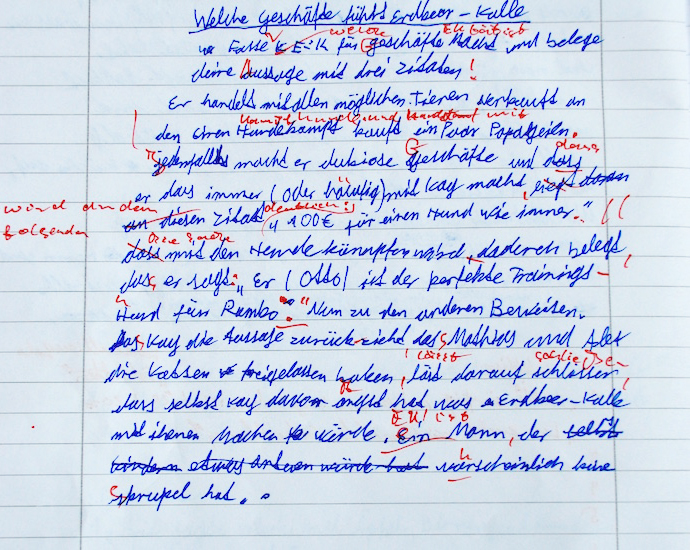 Welche Geschäfte führt Erdbeer-Kalle
welche EK betreibt
für Geschäfte macht und belege
deine Aussage mit drei Zitaten!
Er handelt mit allen möglichen Tieren verkauft an
Hundekampf kauft ein Paar Papageien.
jedenfalls macht er dubiose Geschäfte und dass
er das immer (oder häufig) mit Kay macht, liegt daran
wird an dem
an diesen Zitat deutlich: „100€ für einen Hund wie immer."
folgenden
mit den Hunde kämpfen wird, dadurch belegt
das, er sagt: „Er (Otto) ist der perfekte Trainings-
Hund für Rambo." Nun zu den anderen Beweisen.
Das Kay die Aussage zurückzieht das Mathias und Alex
die Katzen freigelassen haben, läst darauf schlossen
lässt schließen
dass selbst Kay davor angst hat was Erdbeer-Kalle
mit ihnen Machen würde. Ein Mann, der selbst
EK ist
würde hat warscheinlich keine
Skrupel hat.